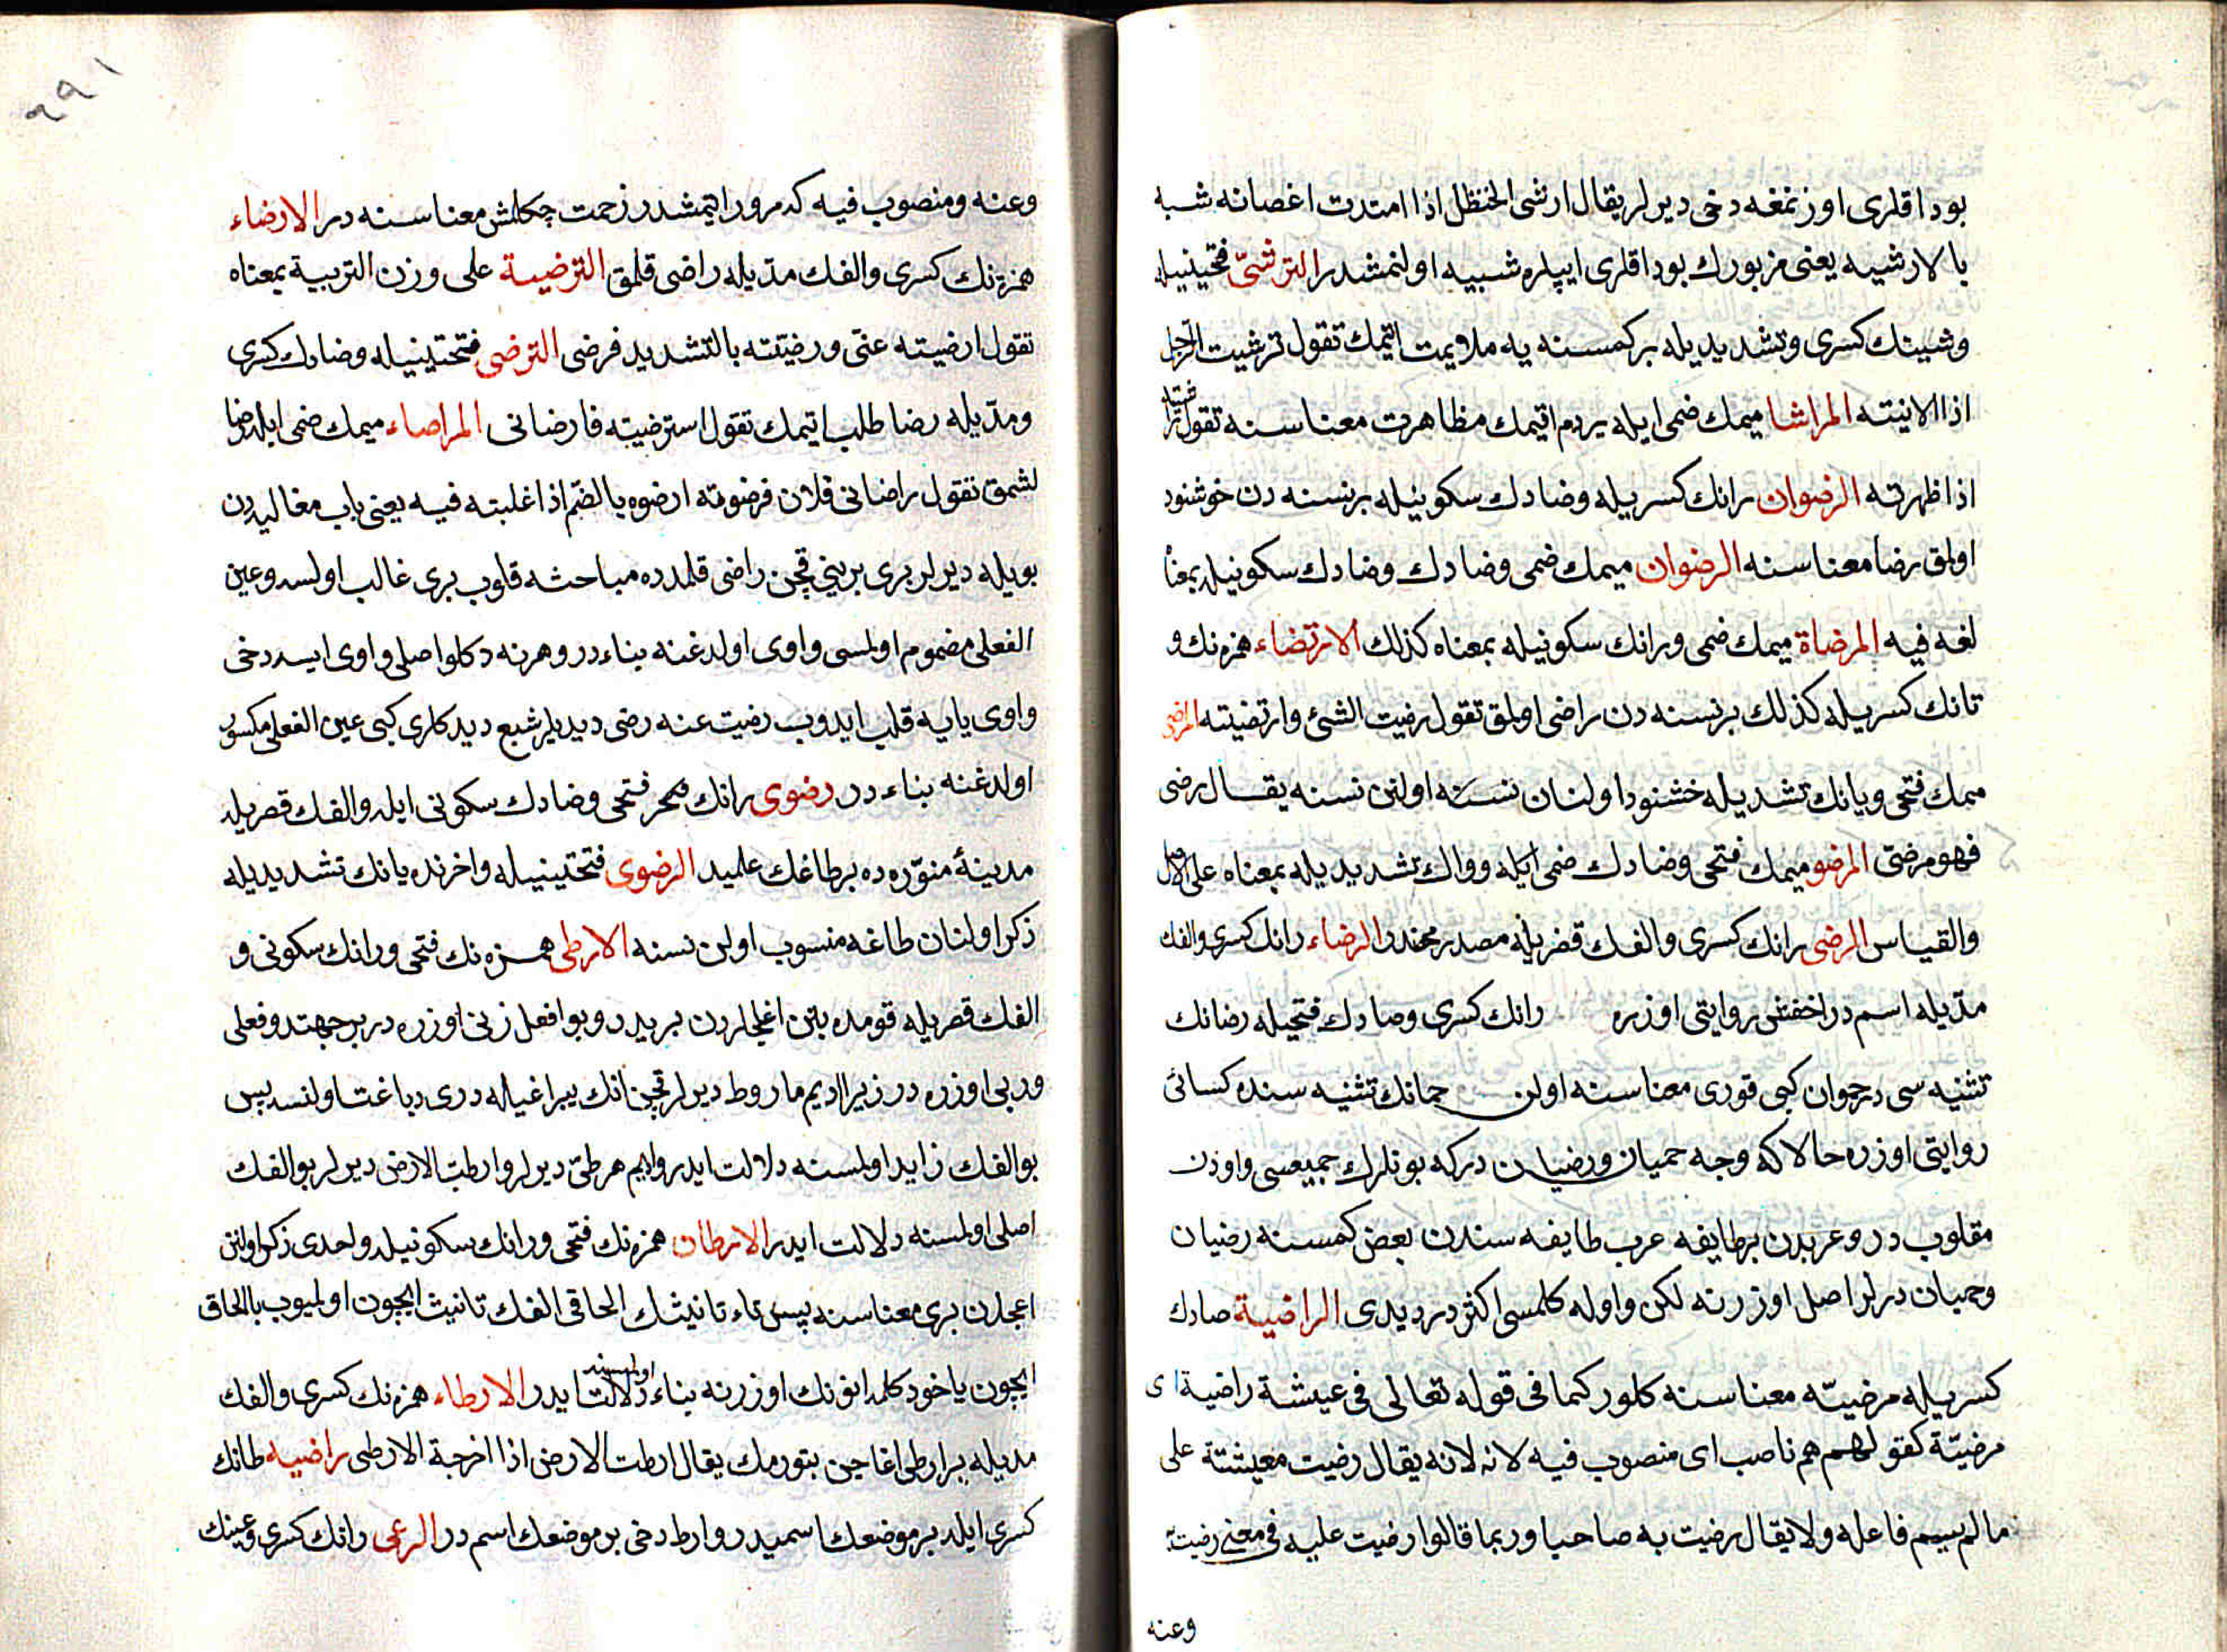 بوداقلری اوزنمغه دخی دیرلر یقال ارشی الحنظل اذا امتدت اغصانه شبه
بالارشیه یعنی مزبورك بوداقلری ایپلره شبیه اولنمشدر الترشّی فتحتینیله
وشینك کسری وتشدیدیله برکمسنه یه ملایمت اتیمك تقول ترشیت الرجل
اذا لاینته المراشا میمك ضمی ایله یردم اتیمك مظاهرت معناسنه تقول راشیته
اذا ظهرته الرضوان رانك کسریله وضادك سکونیله برنسنه دن خوشنود
اولمق رضا معناسنه الرضوان میمك ضمی وضادك وضادك سکونیله بمعناه
لغه فیه المرضاة میمك ضمی ورانك سکونیله بمعناه کذلك الارتضاء همزنك و
تانك کسریله کذلك برنسنه دن راضی اولمق تقول رضیت الشئ وارتضیته المرضی
میمك فتحی ویانك تشدیله خشنود اولنان نسنه اولنن نسنه یقال رضی
فهو مرضیّ المرضو میمك فتحی وضادك ضمی ایله وواك تشدیدیله بمعناه علی الاصل
والقیاس الرضی رانك کسری والفك قصریله مصدر محضدر الرضاء رانك کسری والفك
مدّیله اسمدر اخفش روایتی اوزره رانك کسری وصادك فتحیله رضانك
تثنیه سی در حموان کبی قوری معناسنه اولن حمانك تثنیه سنده کسائی
روایتی اوزره حالا که وجه حمیان ورضیان درکه بونلرك جمیعسی واودن
مقلوب در وعربدن برطایفه عرب طایفه سندن بعض کمسنه رضیان
وحمیان درلر اصل اوزرنه لکن واوله کلمسی اکثر در دیدی الراضیة صادك
کسریله مرضیّه معناسنه کلور کما فی قوله تعالی فی عیشة راضیة ای
مرضیّة کقولهم هم ناصب ای منصوب فیه لانه لانه یقال رضیت معیشتة علی
مالم یسم فاعله ولا یقال رضیت به صاحبا وربما قالوا رضیت علیه فی معنی رضیت به
وعنه
٢٩١
وعنه ومنصوب فیه که مرور اتیمشدر زحمت چکلمش معناسنه در الارضاء
همزه نك کسری والفك مدّیله راضی قلمق الترضیة علی وزن التربیة بمعناه
تقول ارضیته عنّی ورضیتته بالتشدید فرضی الترضی فتحتینیله وضادك کسری
ومدّیله رضا طلب اتیمك تقول استرضیته فارضانی المراصاء میمك ضمی ایله رضا
لشمق تقول راضانی فلان فرضوته ارضوه بالضّم اذا غلبته فیه یعنی باب مغالبه دن
بویله دیرلر بری برینی قچن راضی قلمدده مباحثه قلوب بری غالب اولسه وعین
الفعلی مضموم اولمسی واوی اولدغنه بناء در وهرنه دکلو اصلی واوی ایسه دخی
واوی یایه قلب ایدوب رضیت عنه رضی دیدیلر شبع دیدکلری کبی عین الفعلی مکسور
اولدغنه بناء در رضوی رانك فتحی وضادك سکونی ایله والفك قصریله
مدینۀ منوّره ده برطاغك علمیدر الرضوی فتحتینیله واخرنده یانك تشدیدیله
ذکر اولنان طاغه منسوب اولن نسنه الارطی همزه نك فتحی ورانك سکونی و
الفك قصریله قومده بتن اغجلردن بریدر وبو افعل زنی اوزره در برجهتدو فعلی
وربی اوزره در زیرا ادیم ماروط دیرلر قچن انك یپراغیله دری دباغت اولنسه پس
بو الفك زاید اولمسنه دلالت ایدر وادیم مرطیّ دیرلر وارطت الارض دیرلر بو الفك
اصلی اولمسنه دلالت ایدر الارطان همزه نك فتحی ورانك سکونیله واحدی ذکر اولنن
اعجلدن بری معناسنه پس تاء تانیثك الحاقی الفك تانیث ایچون اولمیوب بالحاق
ایچون یاخود کلمه انونك اوزرنه بناء اولمسنه دلالت ایدر الارطاء همزنك کسری والفك
مدیله یر ارطی اغاجین بتورمك یقال ارطت الارض اذا اخرجة الارطی راضیه طانك
کسری ایله بر موضعك اسمیدر وارط دخی بر موضعك اسمدر الرعی رانك کسری وعینك